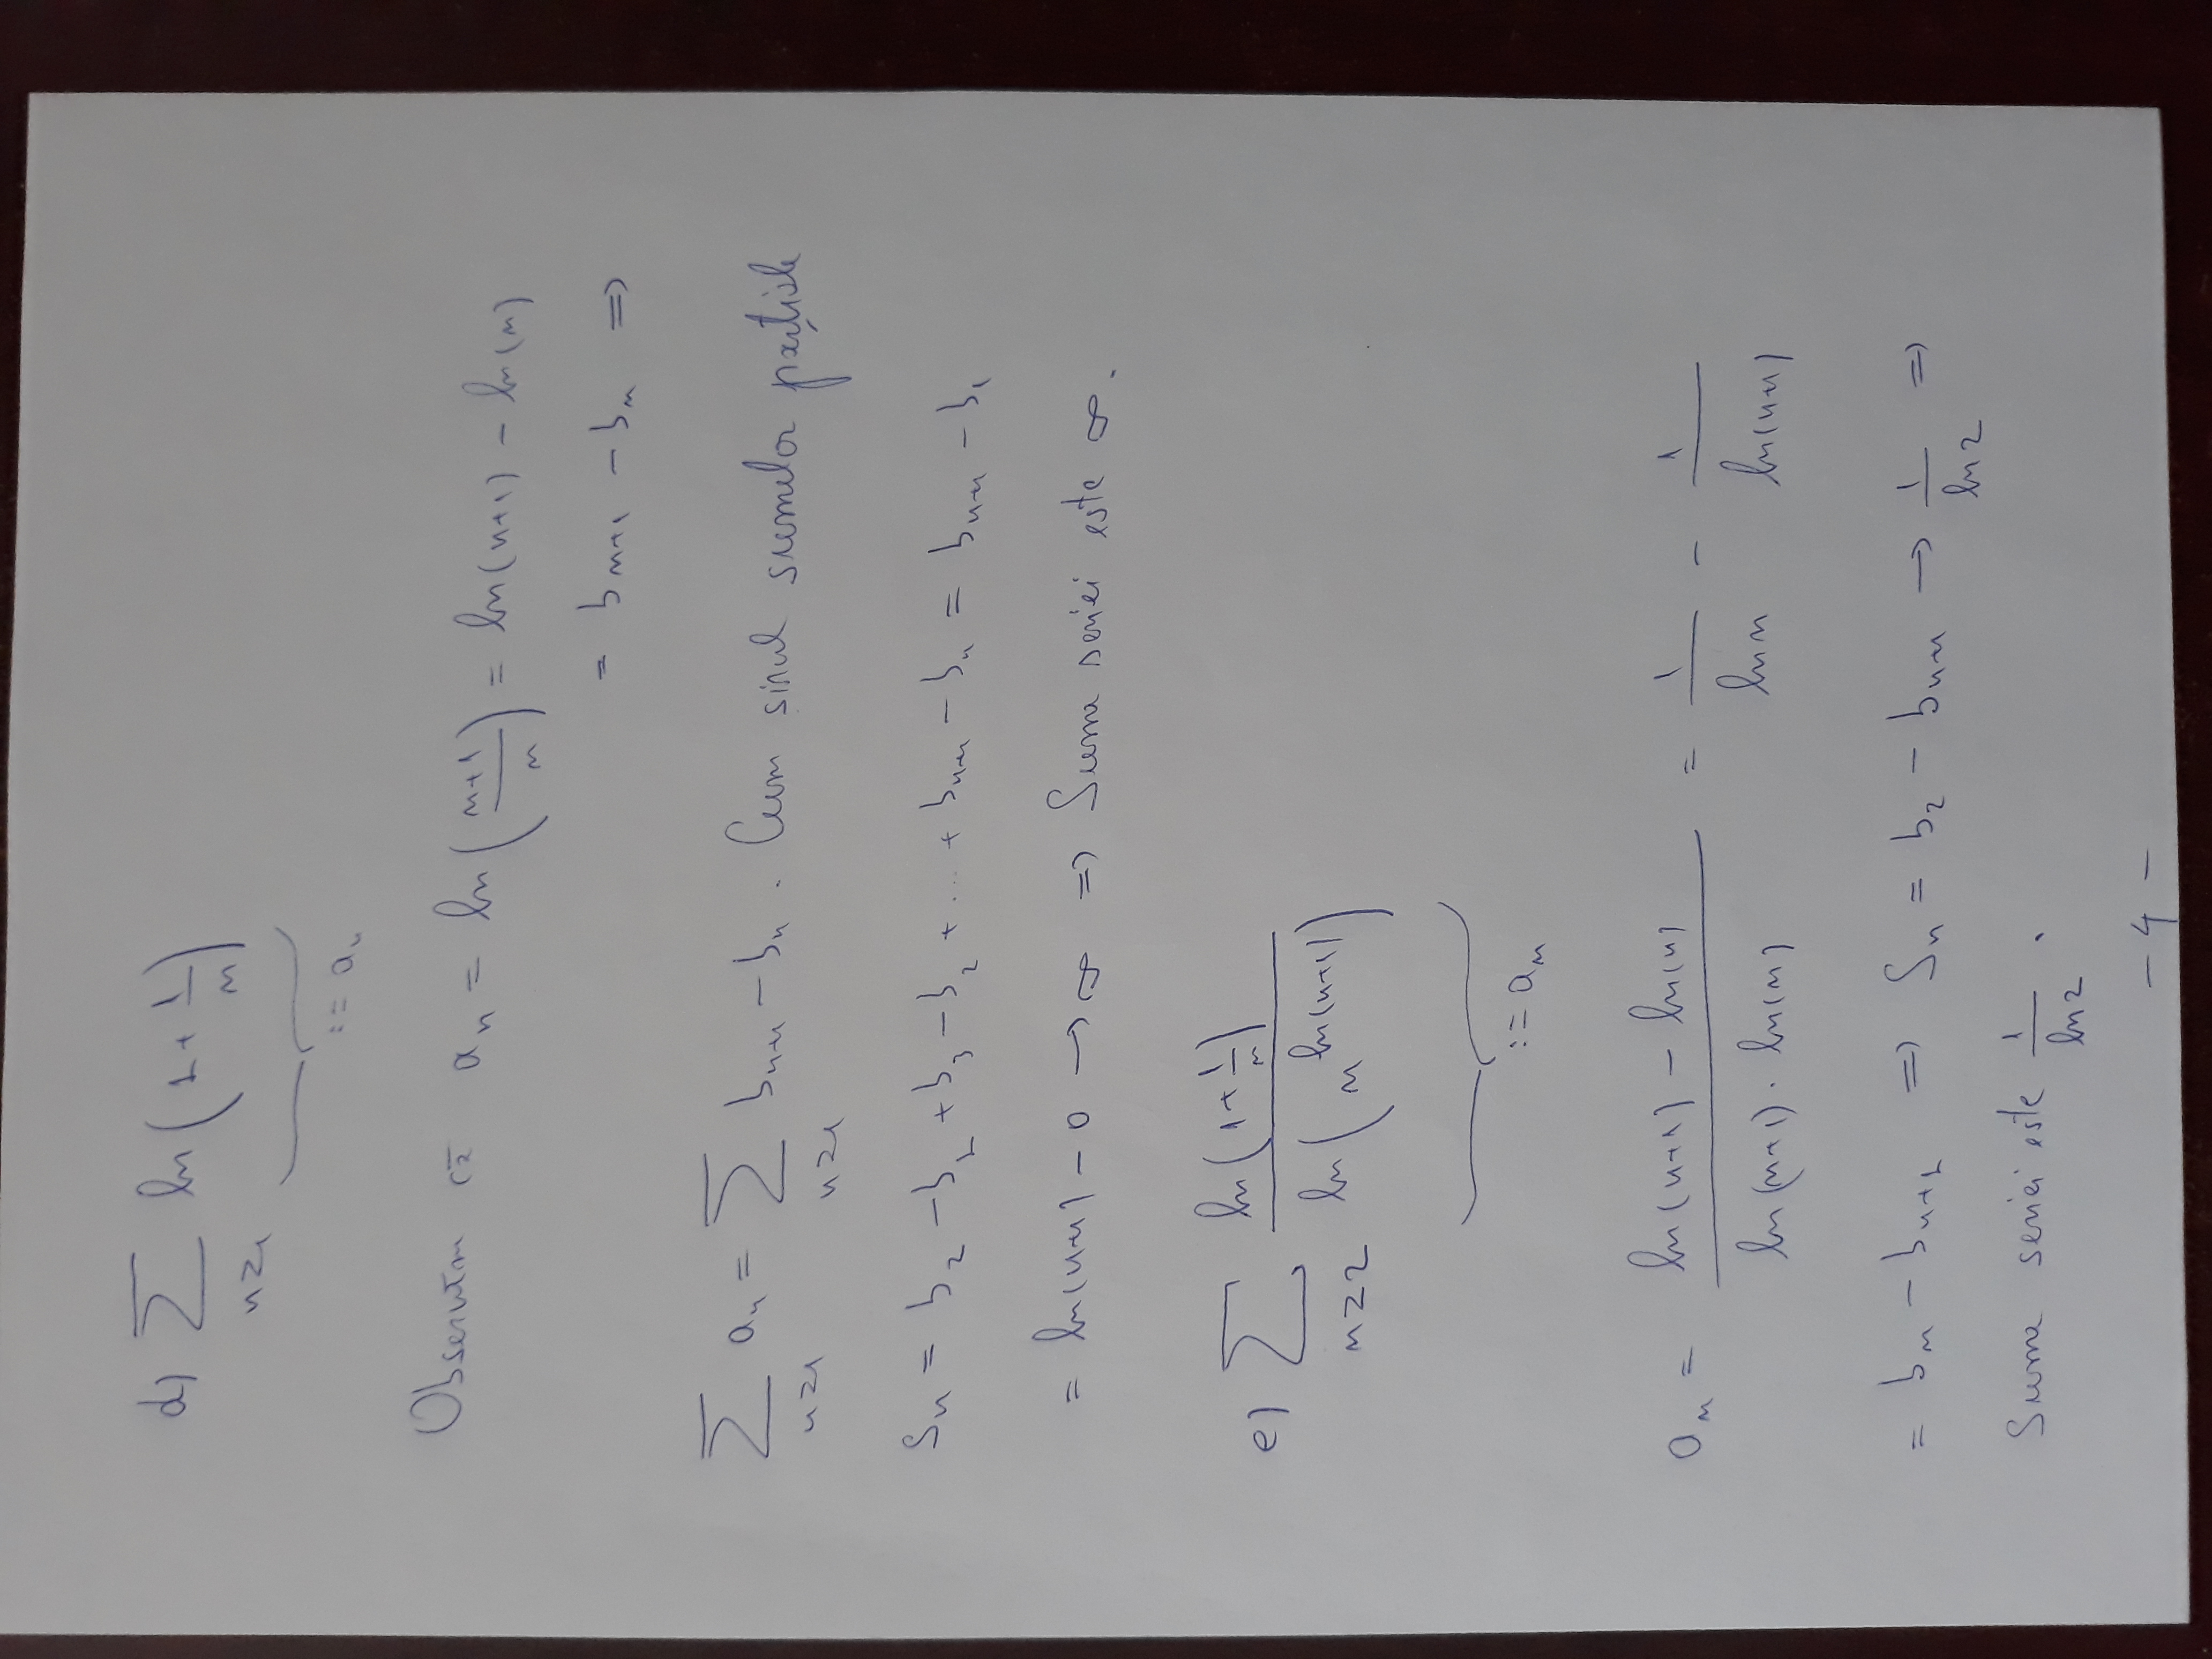 d) ∑_{n≥1} ln(1 + 1/n)
:= a_n
Observăm că a_n = ln((n+1)/n) = ln(n+1) - ln(n)
= b_{n+1} - b_n ⇒
∑_{n≥1} a_n = ∑_{n≥1} b_{n+1} - b_n. Cum șirul sumelor parțiale
S_n = b_2 - b_1 + b_3 - b_2 + ... + b_{n+1} - b_n = b_{n+1} - b_1
= ln(n+1) - 0 → ∞ ⇒ Suma seriei este ∞.
e) ∑_{n≥2} ln(1 + 1/n) / ln(n^{ln(n+1)})
:= a_n
a_n = (ln(n+1) - ln(n)) / (ln(n+1) · ln(n)) = 1/ln n - 1/ln(n+1)
= b_n - b_{n+1} ⇒ S_n = b_2 - b_{n+1} → 1/ln 2 ⇒
Suma seriei este 1/ln 2.
- 4 -